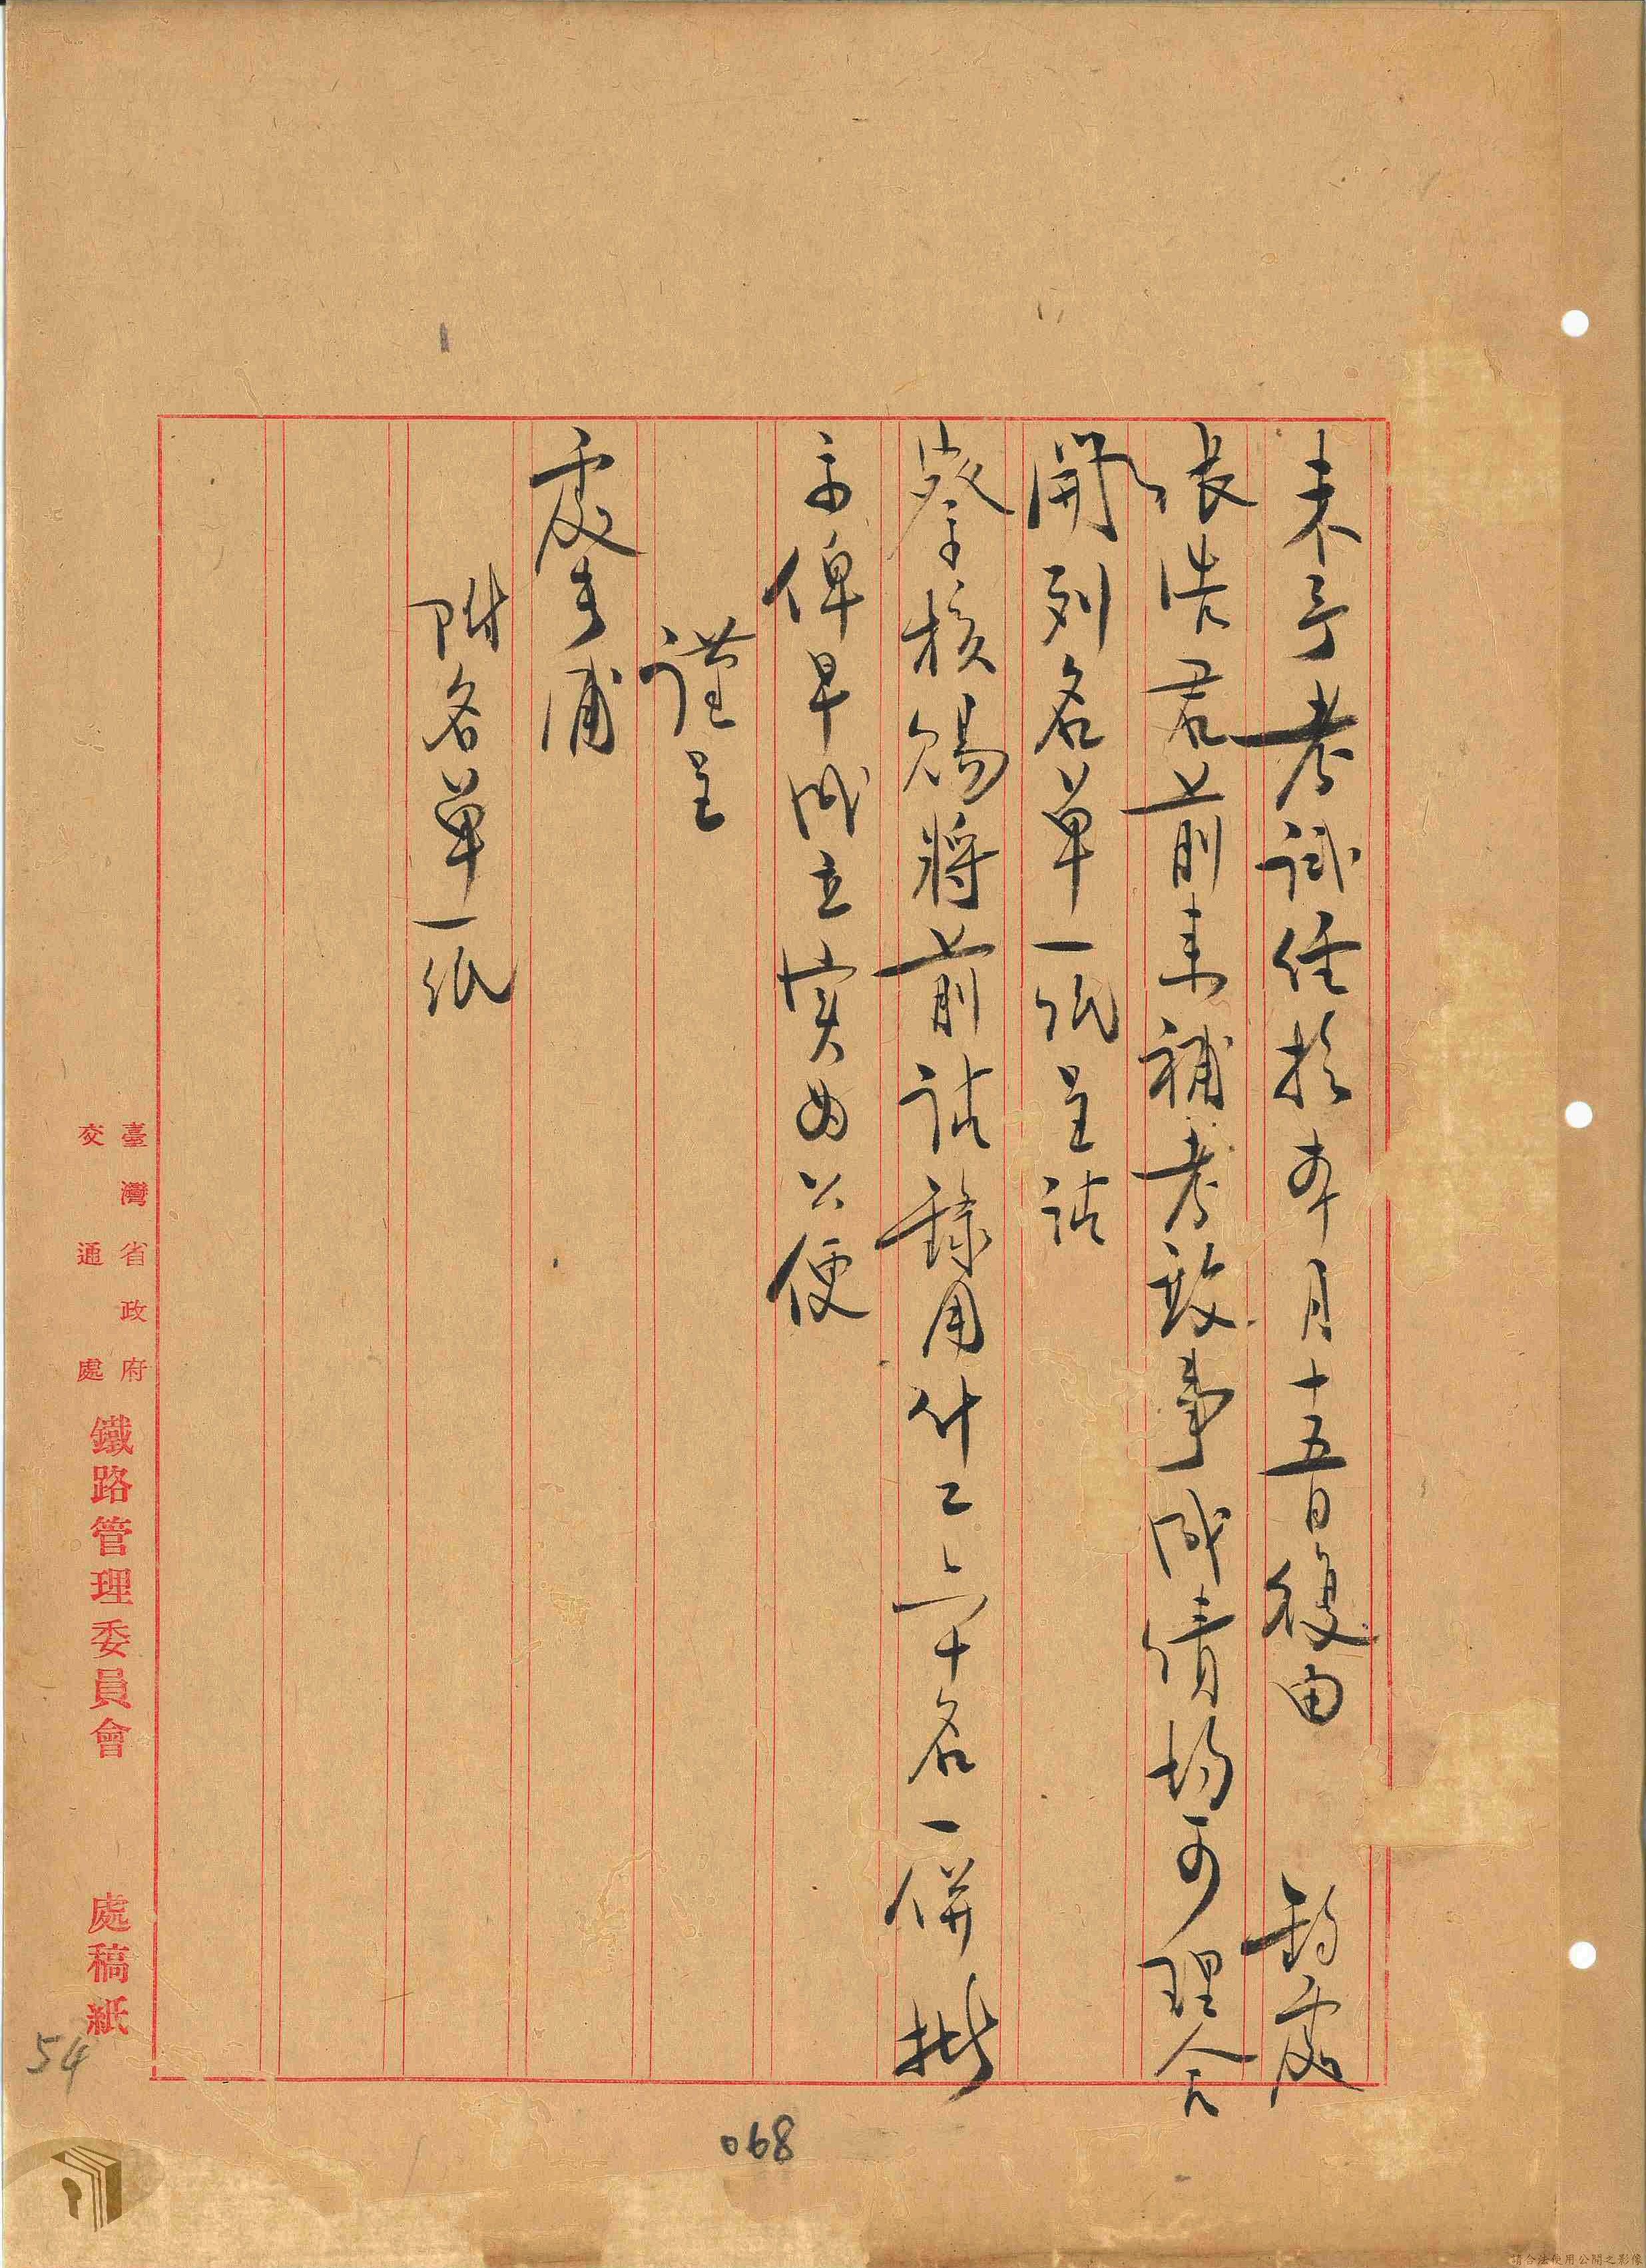 未予考試經於本月十五日復由 鈞處
張浩君前來補考敬事成績均可理合
開列名單一紙呈請
詧核賜將前請錄用什工六十名一併批
示俾早成立實為公便
謹呈
處長浦
附名單一紙
臺灣省政府
交通處
鐵路管理委員會 處稿紙
54
068
請合法使用公開之影像